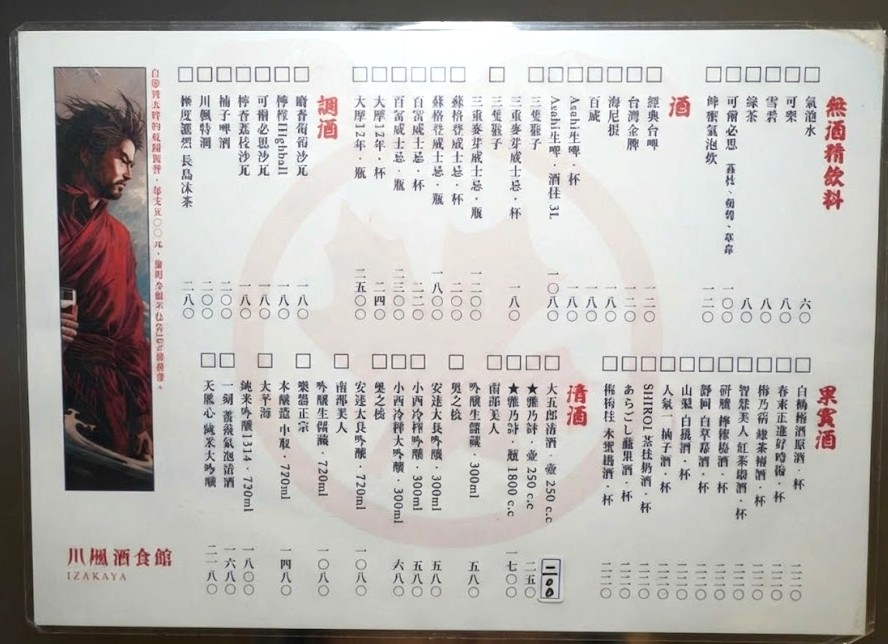 無酒精飲料
氣泡水 六〇
可樂 八〇
雪碧 八〇
綠茶 八〇
可爾必思 荔枝、葡萄、草莓 一〇〇
蜂蜜氣泡飲 一二〇
酒
經典台啤 一二〇
台灣金牌 一二〇
海尼根 一八〇
百威 一八〇
Asahi生啤·杯 一八〇
Asahi生啤·酒柱 3L 一〇八〇
三隻猴子
三重麥芽威士忌·杯 一八〇
三隻猴子
三重麥芽威士忌·瓶 一二〇〇
蘇格登威士忌·杯 二〇〇
蘇格登威士忌·瓶 一八〇〇
百富威士忌·杯 二二〇
百富威士忌·瓶 二三〇〇
大摩12年·杯 二四〇
大摩12年·瓶 二五〇〇
調酒
葡萄沙瓦 一八〇
檸檬Highball 一八〇
可爾必思沙瓦 一八〇
檸香荔枝沙瓦 一八〇
柚子啤酒 二〇〇
川楓特調 二〇〇
極度濃烈 長島冰茶 二八〇
果實酒
白鶴梅酒原酒·杯 二二〇
春來正進好時梅·杯 二二〇
梅乃宿 綠茶梅酒·杯 二二〇
智慧美人 紅茶梅酒·杯 二二〇
研釀 檸檬梅酒·杯 二二〇
靜岡 白草莓酒·杯 二二〇
山梨 白桃酒·杯 二二〇
人氣一 柚子酒·杯 二二〇
SHIROI 荔枝奶酒·杯 二二〇
あらごし 蘋果酒·杯 二二〇
梅乃宿 水蜜桃酒·杯 二二〇
清酒
大五郎清酒·壺 250 c.c 二00
★雅乃詩·壺 250 c.c 二五〇
★雅乃詩·瓶 1800 c.c 一七〇〇
南部美人
吟釀生儲藏·300ml 五八〇
奧之松
安達太良吟釀·300ml 五八〇
小西冷釋吟釀·300ml 五八〇
小西冷釋大吟釀·300ml 六八〇
奧之松
安達太良吟釀·720ml 一〇八〇
南部美人
吟釀生儲藏·720ml 一〇八〇
櫻正宗
本釀造 中取·720ml 一四八〇
太平海
純米吟釀1314·720ml 一八〇〇
一刻 氣泡清酒 一六八〇
天 心 純米大吟釀 二一八〇
川楓酒食館
IZAKAYA